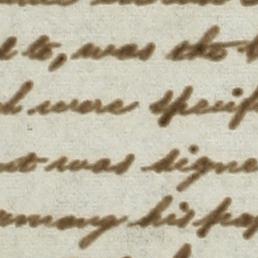 to, was the
were specif
was signe
among his pap